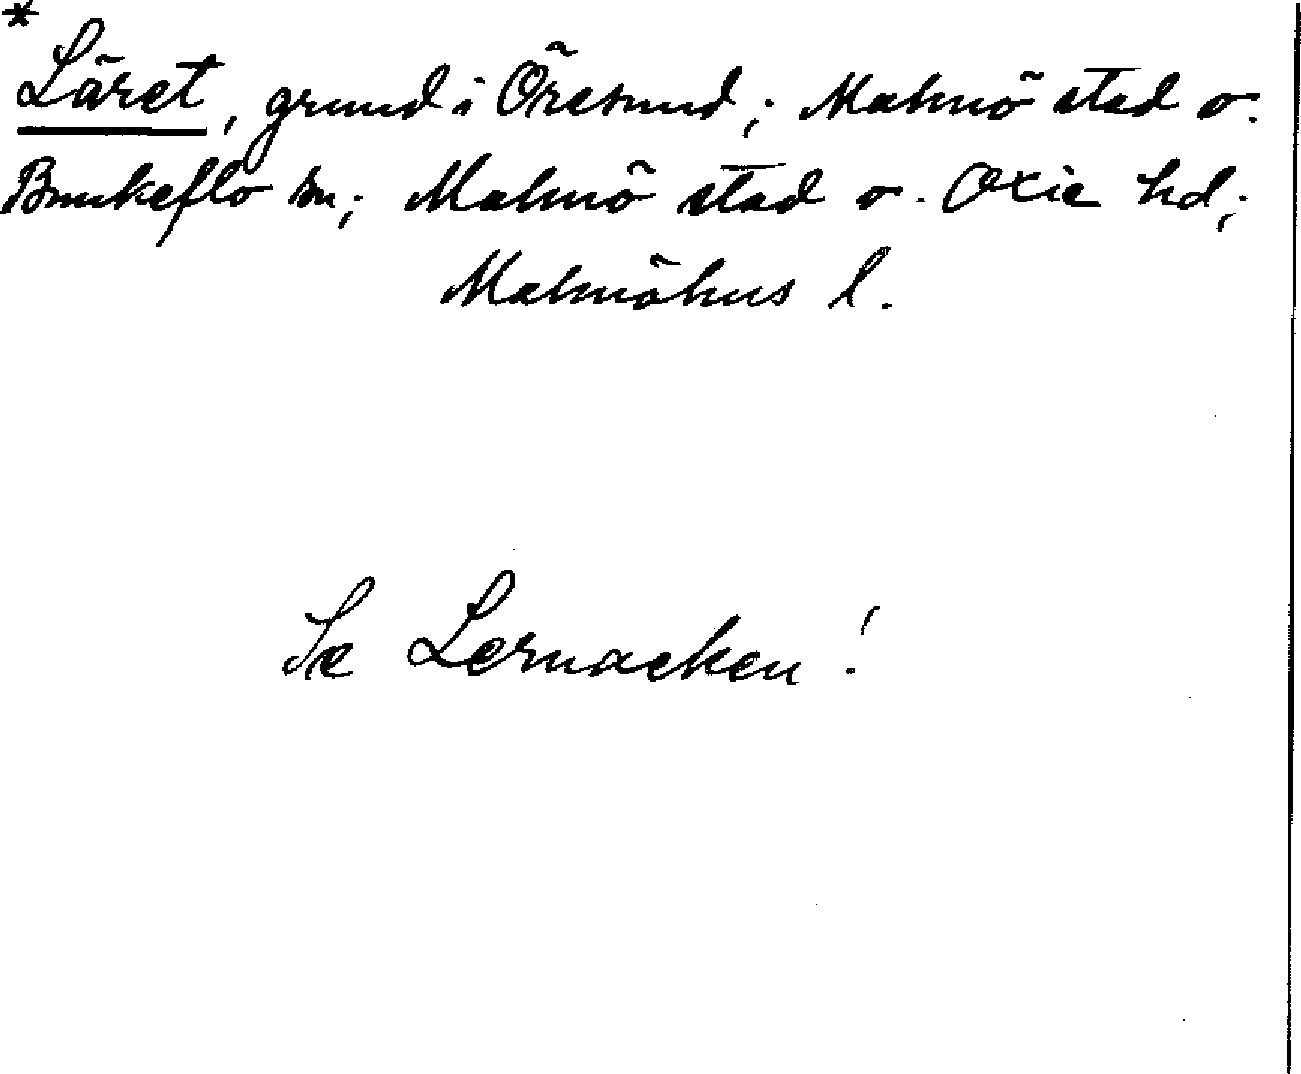 * Läret, grund i Öresund; Malmö stad o.
Bunkeflo sn; Malmö stad o. Oxie hd;
Malmöhus l.
Se Lernacken!